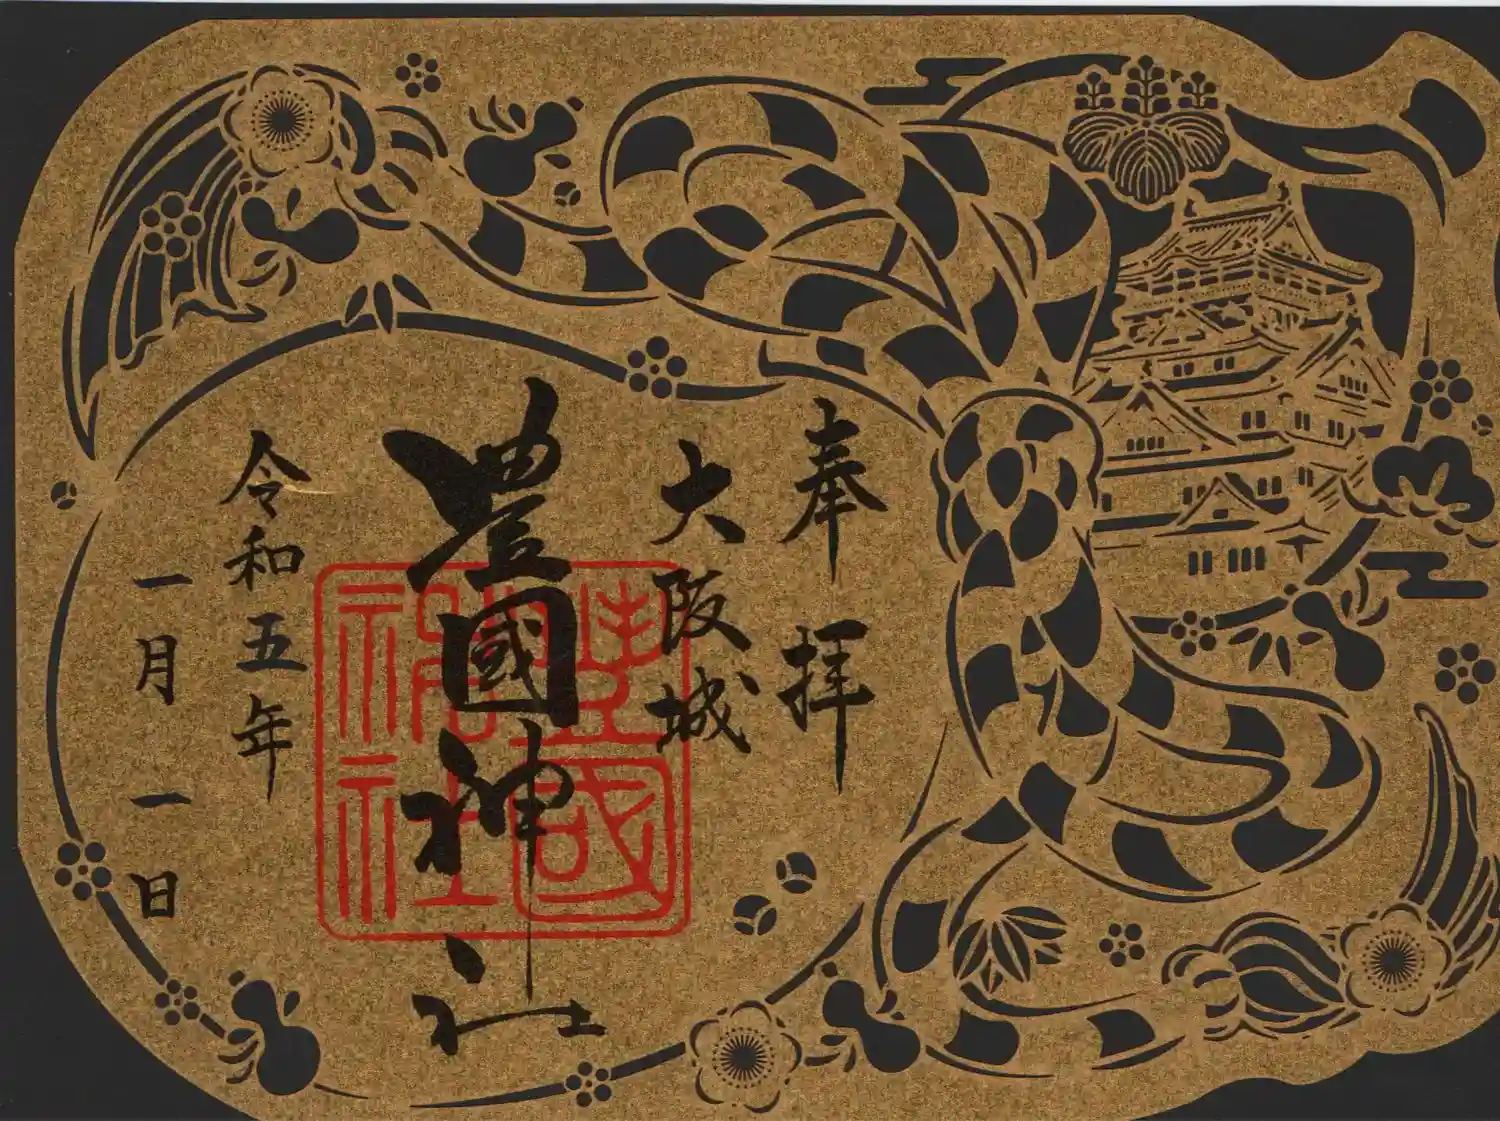 奉拝
大阪城
豊國神社
令和五年
一月一日
豊國神社